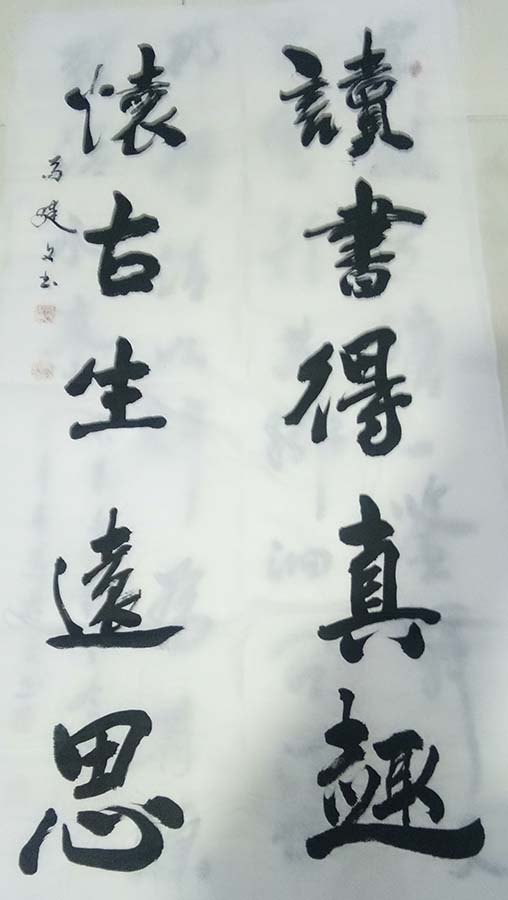 讀書得真趣
懷古生遠思